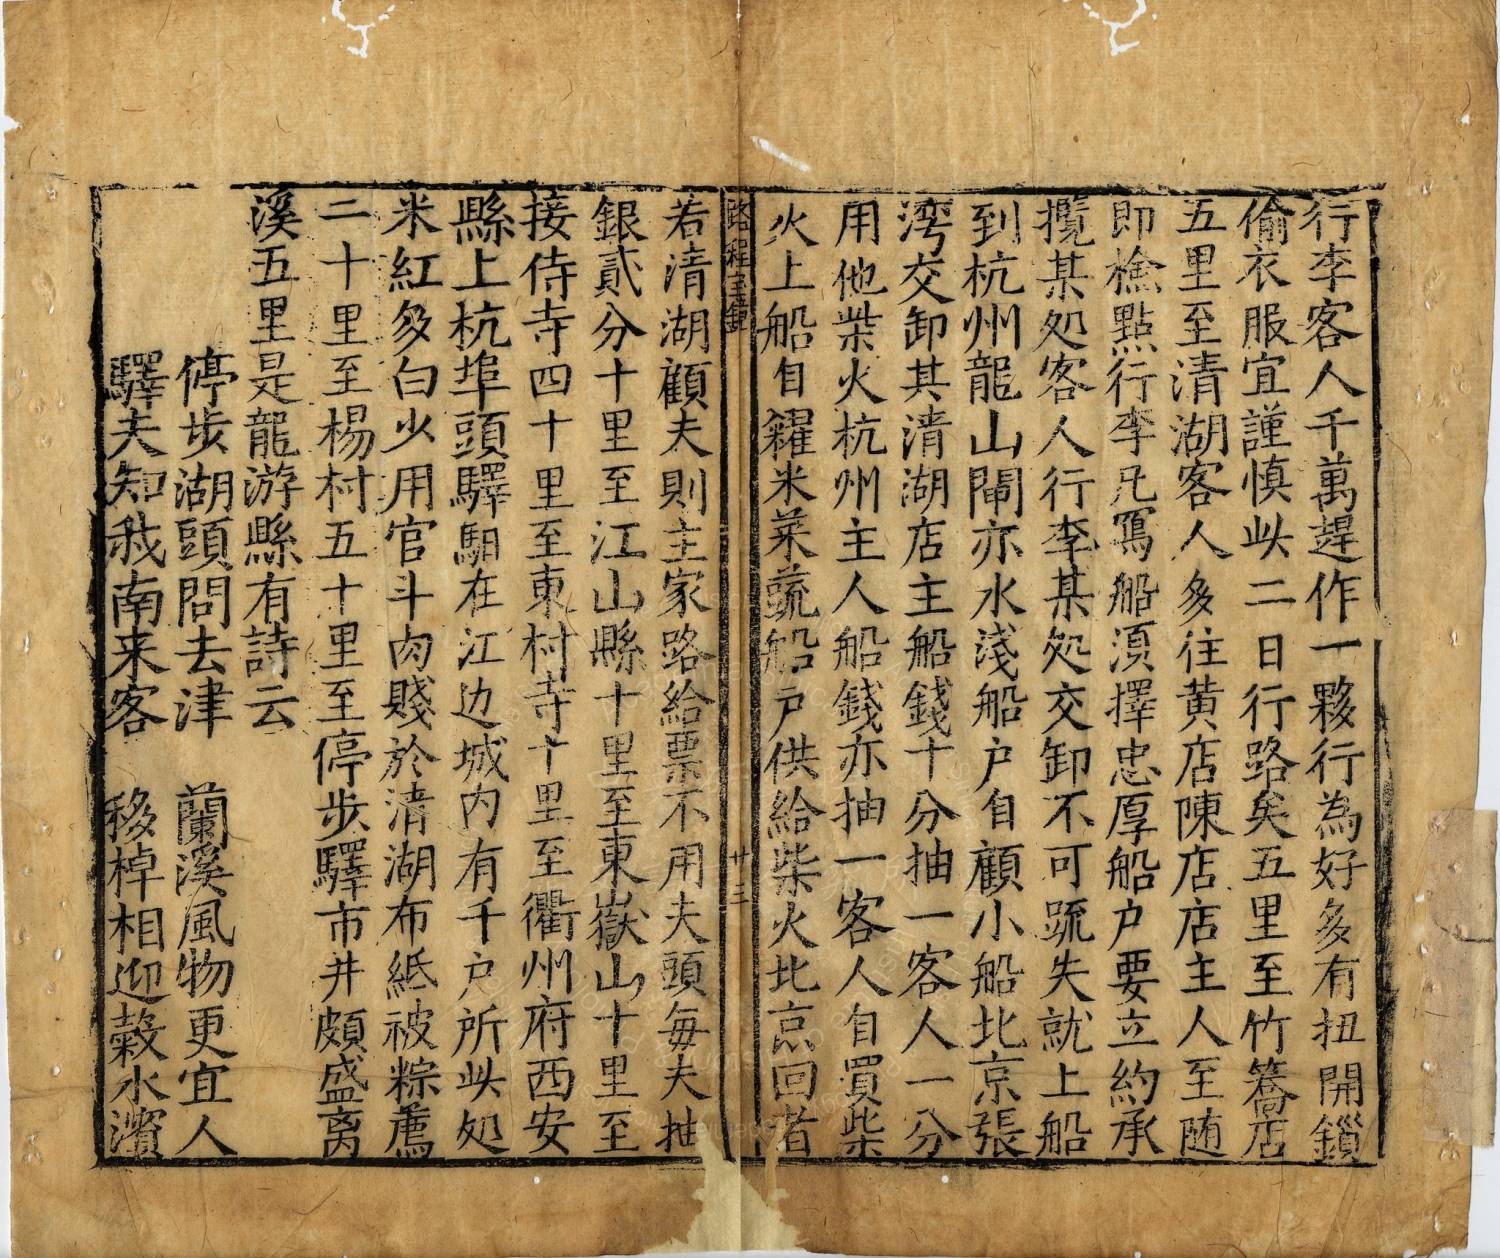 行李客人千萬趕作一夥行為好多有扭開鎖
偷衣服宜謹慎此二日行路矣五里至竹篙店
五里至清湖客人多往黄店陳店店主人至随
即檢點行李凡寫船湏擇忠厚船户要立約承
攬某処客人行李某処交卸不可疏失就上船
到杭州龍山閘亦水淺船户自顧小船北京張
湾交卸其清湖店主船錢十分抽一客人一分
用他柴火杭州主人船錢亦抽一客人自買柴
火上船自糴米菜蔬船户供給柴火北京回者
路程宝
廿三
若清湖顧夫則主家路給票不用夫頭每夫抽
銀貳分十里至江山縣十里至東嶽山十里至
接侍寺四十里至東村寺十里至衢州府西安
縣上杭埠頭驛馹在江边城内有千户所此処
米紅多白少用官斗肉賤於清湖布紙被粽薦
二十里至楊村五十里至停步驛市井頗盛离
溪五里是龍游縣有詩云
停步湖頭問去津　蘭溪風物更宜人
驛夫知我南来客　移棹相迎榖水濱